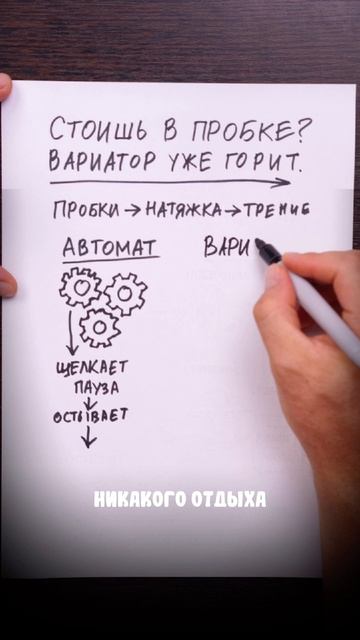 СТОИШЬ В ПРОБКЕ?
ВАРИАТОР УЖЕ ГОРИТ.
ПРОБКИ → НАТЯЖКА → ТРЕНИЕ
АВТОМАТ
ВАРИ
ЩЕЛКАЕТ
ПАУЗА
ОСТЫВАЕТ
НИКАКОГО ОТДЫХА